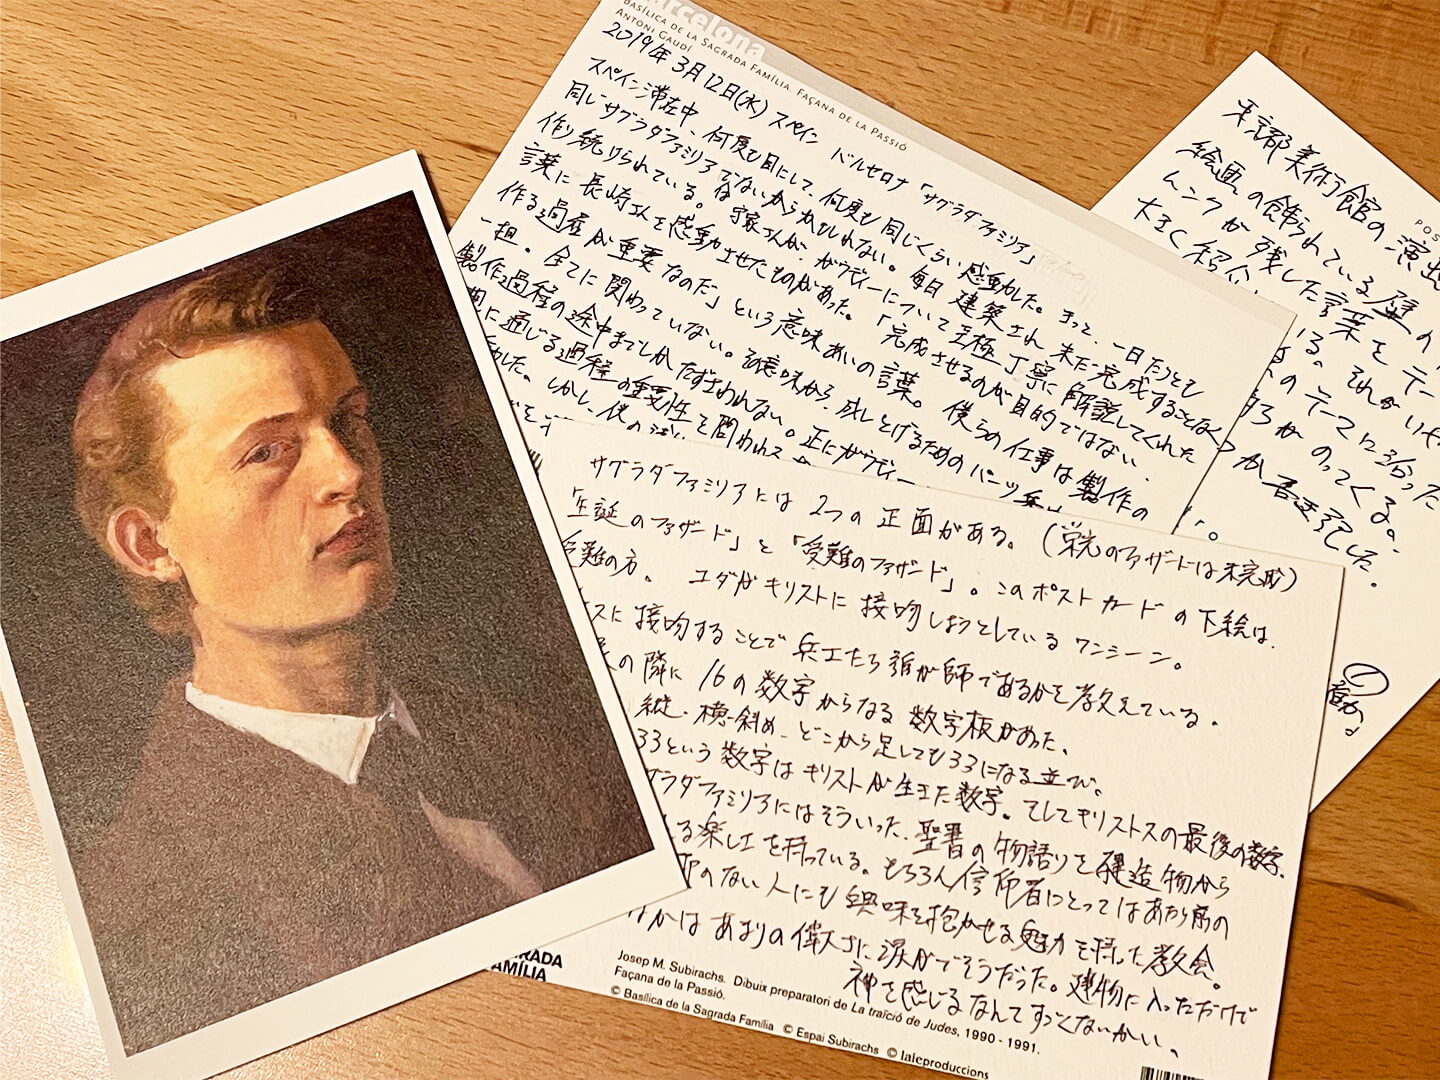 Barcelona
BASÍLICA DE LA SAGRADA FAMÍLIA. FAÇANA DE LA PASSIÓ
ANTONI GAUDÍ
2019年3月12日(水) スペイン バルセロナ「サグラダファミリア」
スペイン滞在中、何度も目にして、何度も同じくらい感動した。きっと、一日たりとも
同じサグラダファミリアでないからかもしれない。毎日建築され未だ完成することなく
作り続けられている。 さんが、ガウディーについて至極丁寧に解説してくれた
言葉に長崎さんを感動させたものがあった。「完成させるのが目的ではない、
作る過程が重要なのだ」という意味あいの言葉。僕らの仕事は製作の
一担。全てに関わっていない。 意味から、成しとげるためのパーツ
製作過程の途中までしかたずさわれない。正にガウディー
に通じる過程の重要性を問われ
した。しかし、僕の
本部美術館の演出
絵画の飾られている壁の
ムンクが残した言葉をテー
大きく紹介
る。それがいや
のテーマに沿った
がのってくる。
か書き記した。
サグラダファミリアには2つの正面がある。(栄光のファザードは未完成)
「生誕のファザード」と「受難のファザード」。このポストカードの下絵は、
受難の方。 ユダがキリストに接吻しようとしているワンシーン。
スに接吻することで兵士たち誰が師であるかを教えている。
の隣に16の数字からなる数字板があった。
縦・横・斜め、どこから足しても33になる並び。
33という数字はキリストが生きた数字。そしてキリストスの最後の数字。
グラダファミリアにはそういった、聖書の物語りを建造物から
る楽しさを持っている。もちろん信仰者にとってはあたり前の
仰のない人にも興味を抱かせる魅力を持した教会。
なかはあまりの偉大さに涙がでそうだった。建物に入っただけで
神を感じるなんてすごくないかい。
SAGRADA
FAMÍLIA
Josep M. Subirachs. Dibuix preparatori de La traïció de Judes, 1990 - 1991.
Façana de la Passió.
© Basílica de la Sagrada Família © Espai Subirachs © laieproduccions